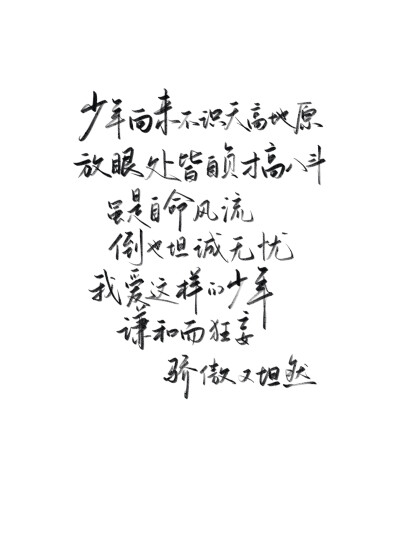 少年向来不识天高地原
放眼处皆自负才高八斗
虽是自命风流
倒也坦诚无忧
我爱这样的少年
谦和而狂妄
骄傲又坦然